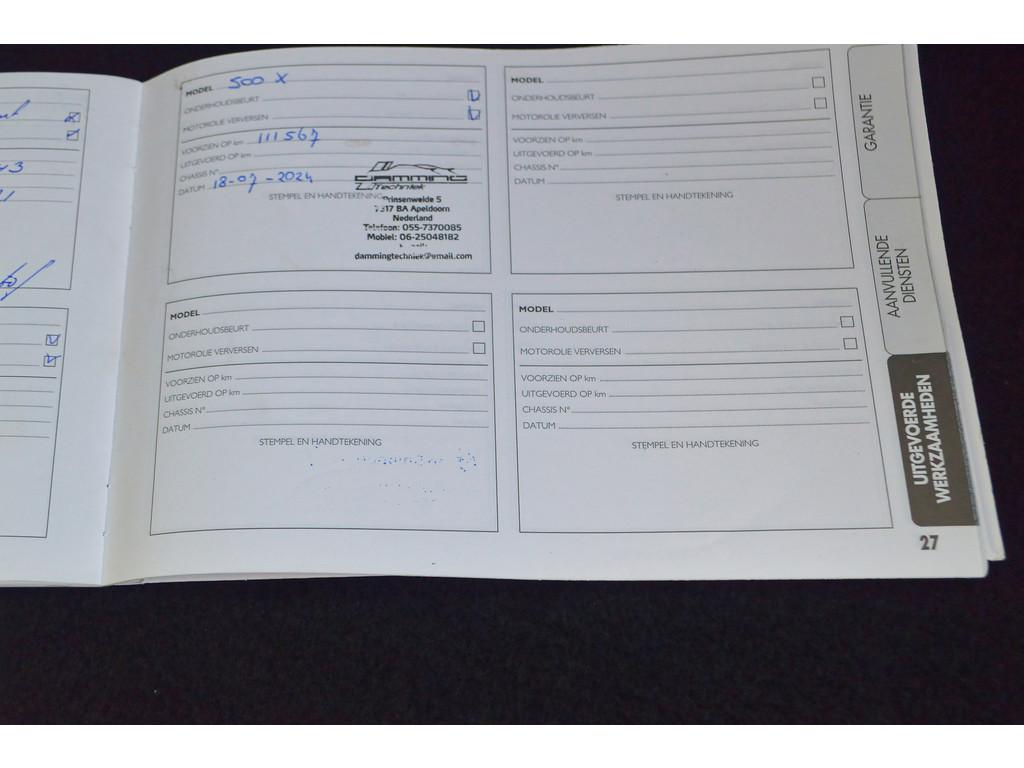 MODEL 500 X
ONDERHOUDSBEURT
MOTOROLIE VERVERSEN
VOORZIEN OP km 111567
UITGEVOERD OP km
CHASSIS N°
DATUM 18-07-2024
STEMPEL EN HANDTEKENING
DAMMING
Techniek
Prinsenweide 5
7317 BA Apeldoorn
Nederland
Telefoon: 055-7370085
Mobiel: 06-25048182
MODEL
ONDERHOUDSBEURT
MOTOROLIE VERVERSEN
VOORZIEN OP km
UITGEVOERD OP km
CHASSIS N°
DATUM
STEMPEL EN HANDTEKENING
MODEL
ONDERHOUDSBEURT
MOTOROLIE VERVERSEN
VOORZIEN OP km
UITGEVOERD OP km
CHASSIS N°
DATUM
STEMPEL EN HANDTEKENING
MODEL
ONDERHOUDSBEURT
MOTOROLIE VERVERSEN
VOORZIEN OP km
UITGEVOERD OP km
CHASSIS N°
DATUM
STEMPEL EN HANDTEKENING
GARANTIE
AANVULLENDE
DIENSTEN
UITGEVOERDE
WERKZAAMHEDEN
27